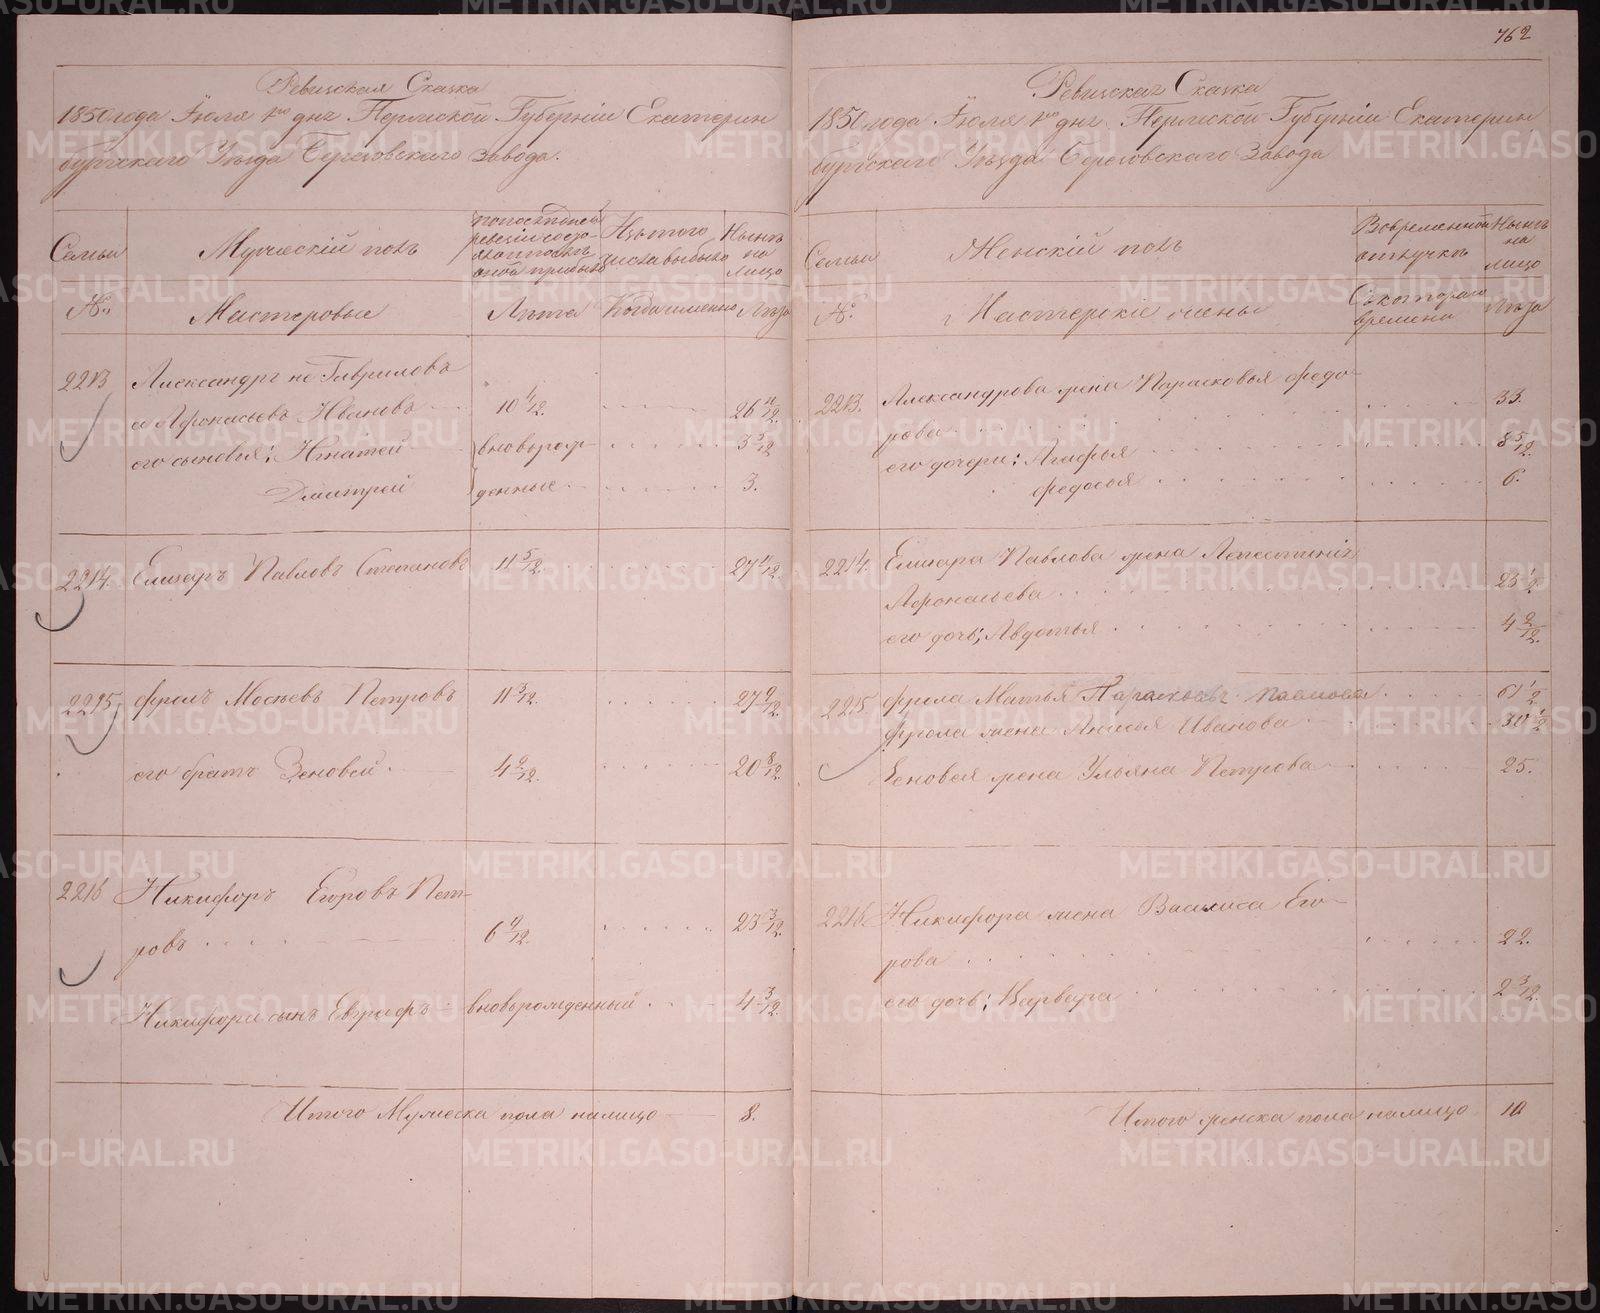 Ревизская Сказка
1850 года Июля 1го дня Пермской Губерніи Екатерин
бургскаго Уѣзда Березовскаго Завода.
Семьи
Мужескій полъ
по последней
ревизіи состо-
яло и после
оной прибыло
Изъ того
числа выбыло
Нынѣ
на
лицо
№
Мастеровые
Лѣта
Когда именно
Лѣта
2213
Александръ не Гавриловъ
а Афонасьевъ Ивановъ
10 4/12.
26 10/12.
его сыновья; Игнатей
вновьрож-
3 3/12
Дмитрей
денные
3.
2214.
Елизаръ Павловъ Степановъ
11 5/12.
27 11/12.
2215
Фролъ Мосѣевъ Петровъ
11 3/12.
27 9/12.
его братъ Зеновей
4 2/12.
20 8/12.
2216
Никифоръ Егоровъ Пет-
ровъ
6 9/12.
23 3/12.
Никифора сынъ Евграфъ
вновьрожденный
4 3/12.
Итого Мужеска пола налицо
8.
762
Ревизская Сказка
1850 года Июля 1го дня Пермской Губерніи Екатерин
бургскаго Уѣзда Березовскаго Завода
Семьи
Женскій полъ
Вовременной
отлучкѣ
Нынѣ
на
лицо
№
Мастерскіе жены
Съкотораго
времени
Лѣта
2213.
Александрова жена Парасковья Федо-
рова
33.
его дочери; Агафья
8 5/12.
Федосья
6.
2214.
Елизара Павлова жена
Афонасьева
23 1/2
его дочь; Авдотья
4 2/12.
2215
Фрола Матья Парасковья Павлова
61 1/2
Фрола жена Анисья Иванова
30 1/2
Зеновея жена Ульяна Петрова
25.
2216.
Никифора жена Василиса Его-
рова
22.
его дочь; Варвара
2 3/12.
Итого женска пола налицо
10
METRIKI.GASO-URAL.RU